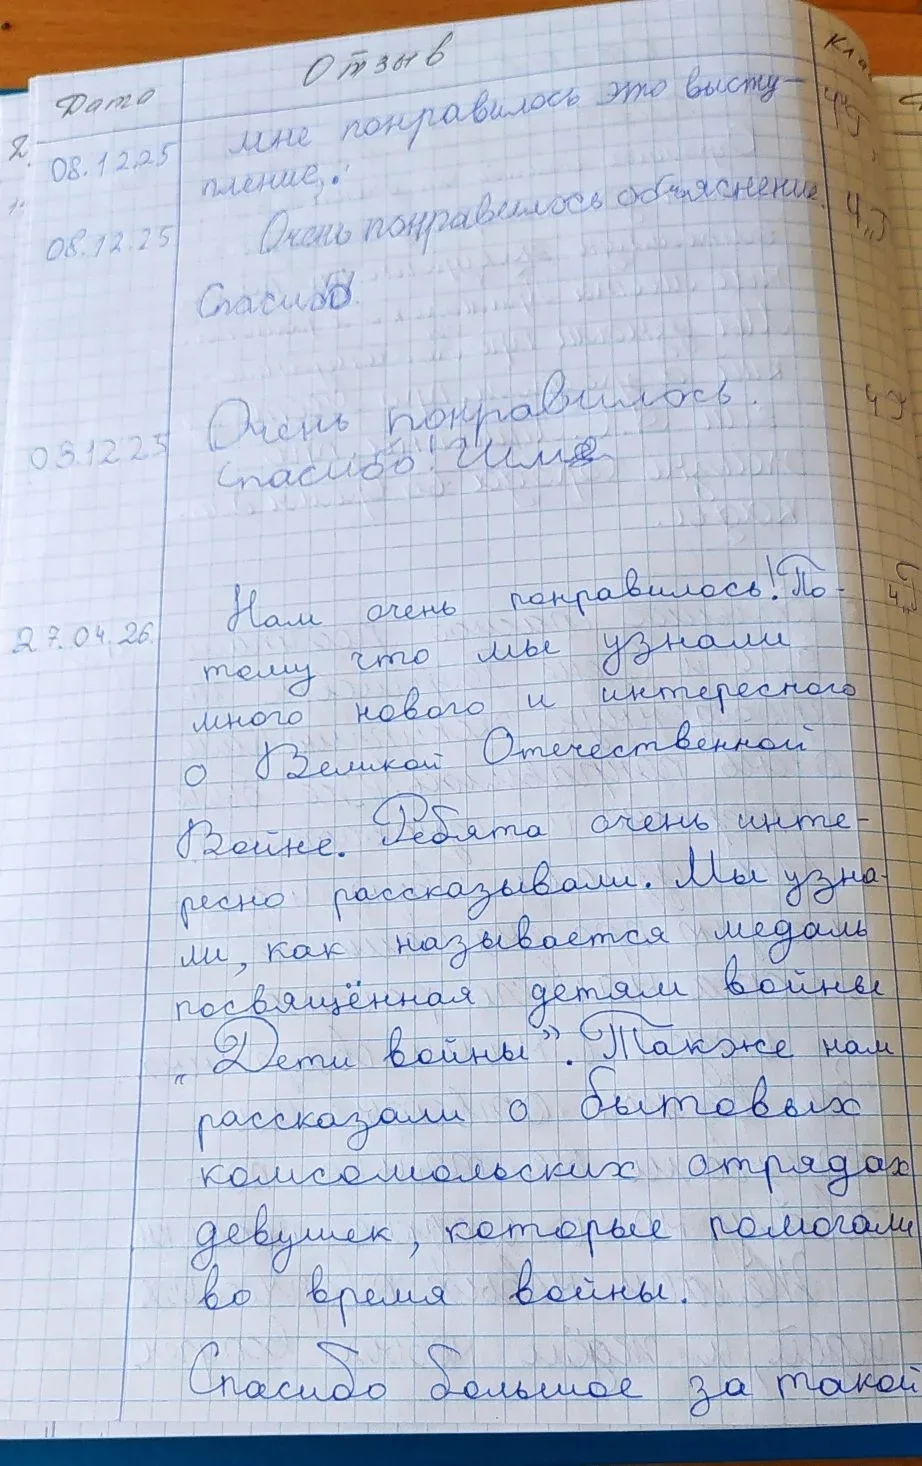 Дата Отзыв Кла
08.12.25 мне понравилось это высту-
пление.
08.12.25 Очень понравилось объяснение.
Спасибо.
08.12.25 Очень понравилось.
Спасибо!
27.04.26. Нам очень понравилось! По-
тому что мы узнали
много нового и интересного
о Великой Отечественной
Войне. Ребята очень инте-
ресно рассказывали. Мы узна-
ли, как называется медаль
посвящённая детям войны
„Дети войны”. Также нам
рассказали о бытовых
комсомольских отрядах
девушек, которые помогали
во время войны.
Спасибо большое за такой